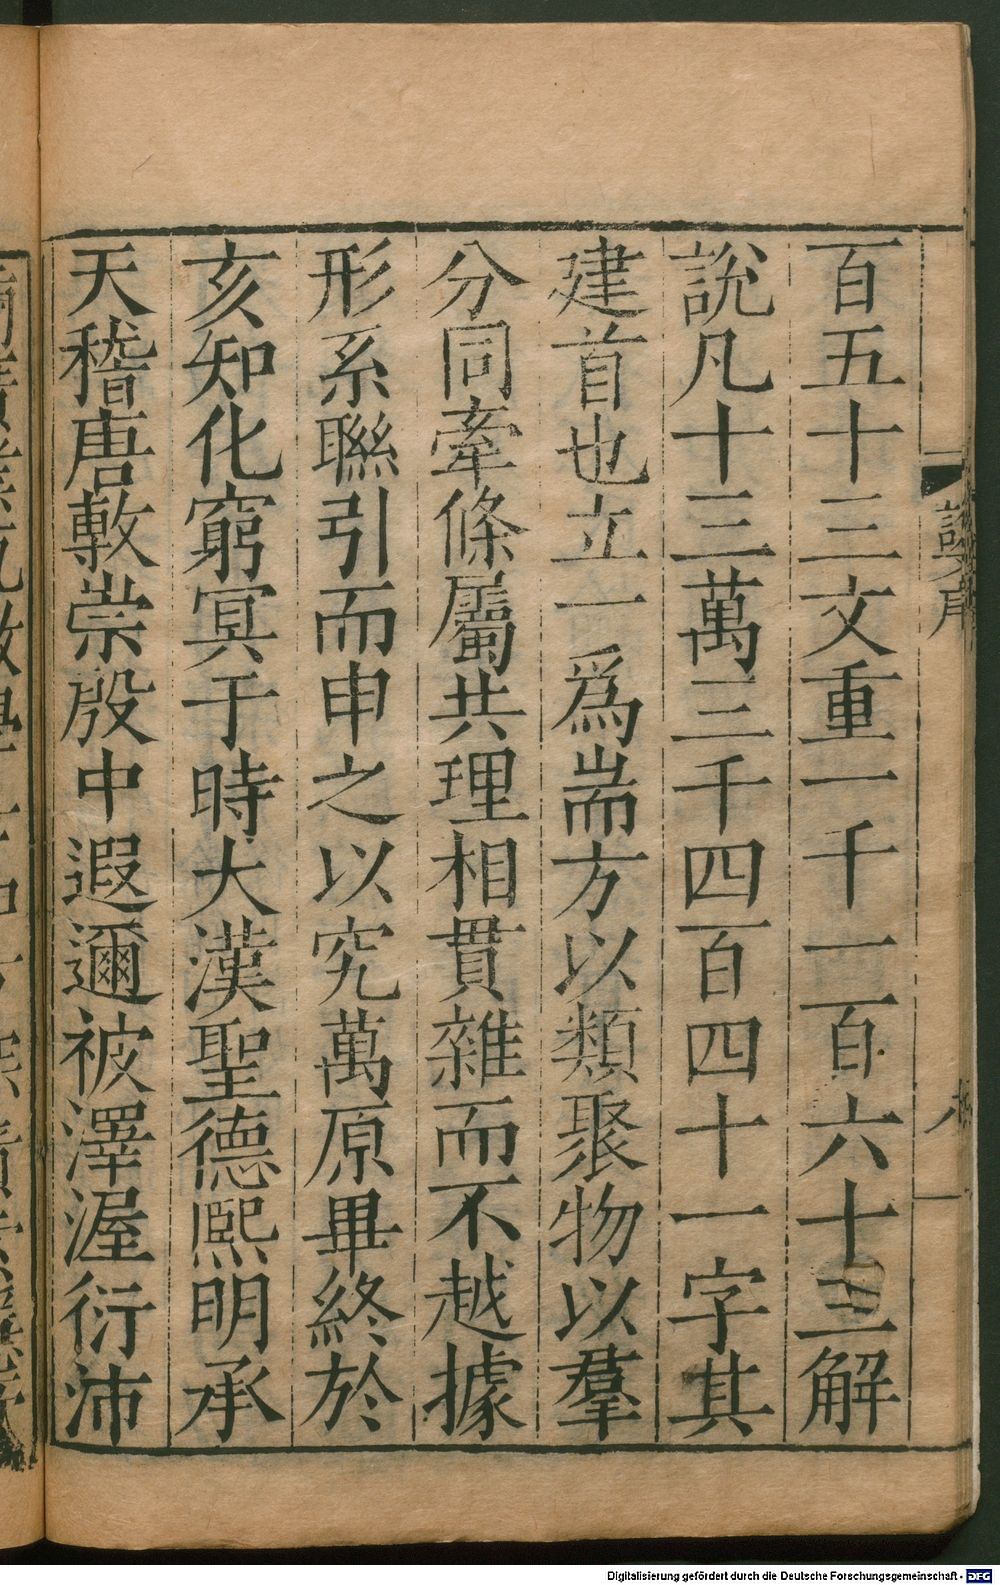 百五十三文重一千一百六十三解
說凡十三萬三千四百四十一字其
建首也立一爲耑方以類聚物以羣
分同牽條屬共理相貫雜而不越據
形系聯引而申之以究萬原畢終於
亥知化窮冥于時大漢聖德熙明承
天稽唐敷崇殷中遐邇被澤渥衍沛
Digitalisierung gefördert durch die Deutsche Forschungsgemeinschaft - DFG